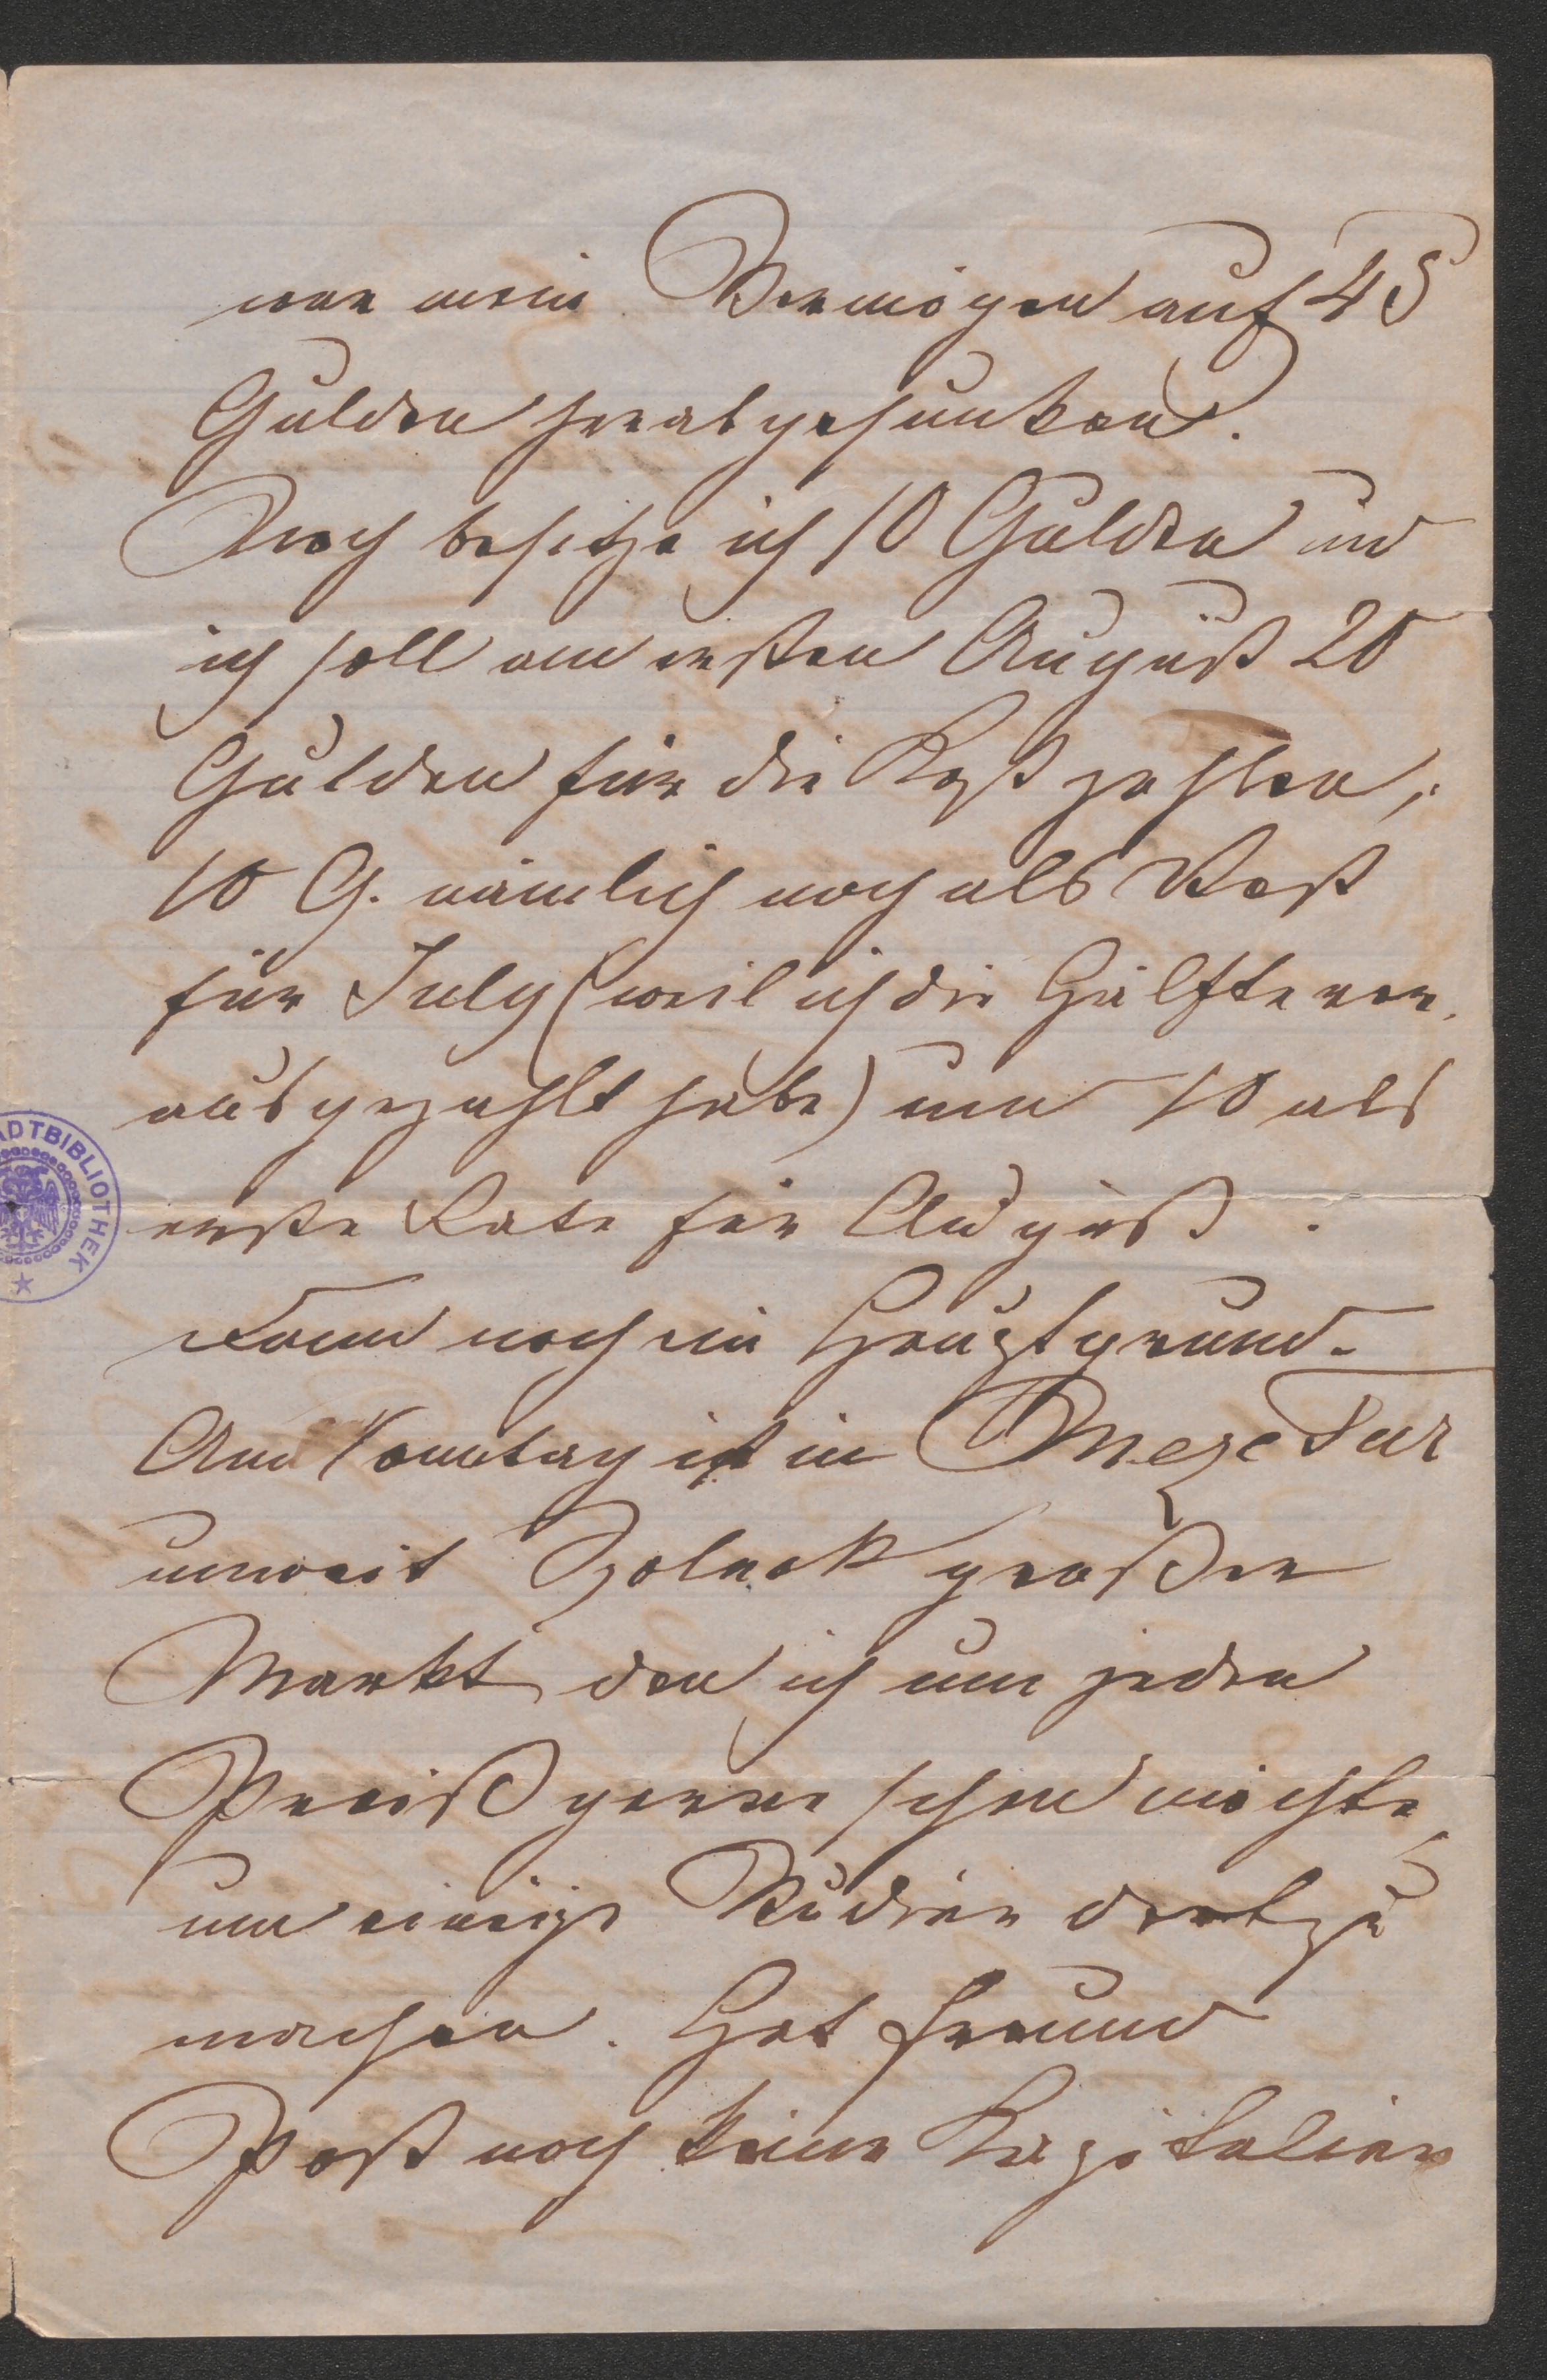 war mein Vermögen auf 45
Gulden herabgesunken.
Noch besitze ich 10 Gulden und
ich soll am ersten August 20
Gulden für die Kost zahlen,
10 G. nämlich noch als Rest
für July (weil ich die Hälfte vor-
ausgezahlt habe) und 10 als
erste Rate für August.
Dann noch ein Hauptgrund.
Am Sonntag ist in Mezetur
unweit Szolnok großer
Markt, den ich um jeden
Preiß gerne sehen möchte,
um einige Studien dort zu
machen. Hat Freund
Post noch keine Kapitalien
ADTBIBLIOTHEK